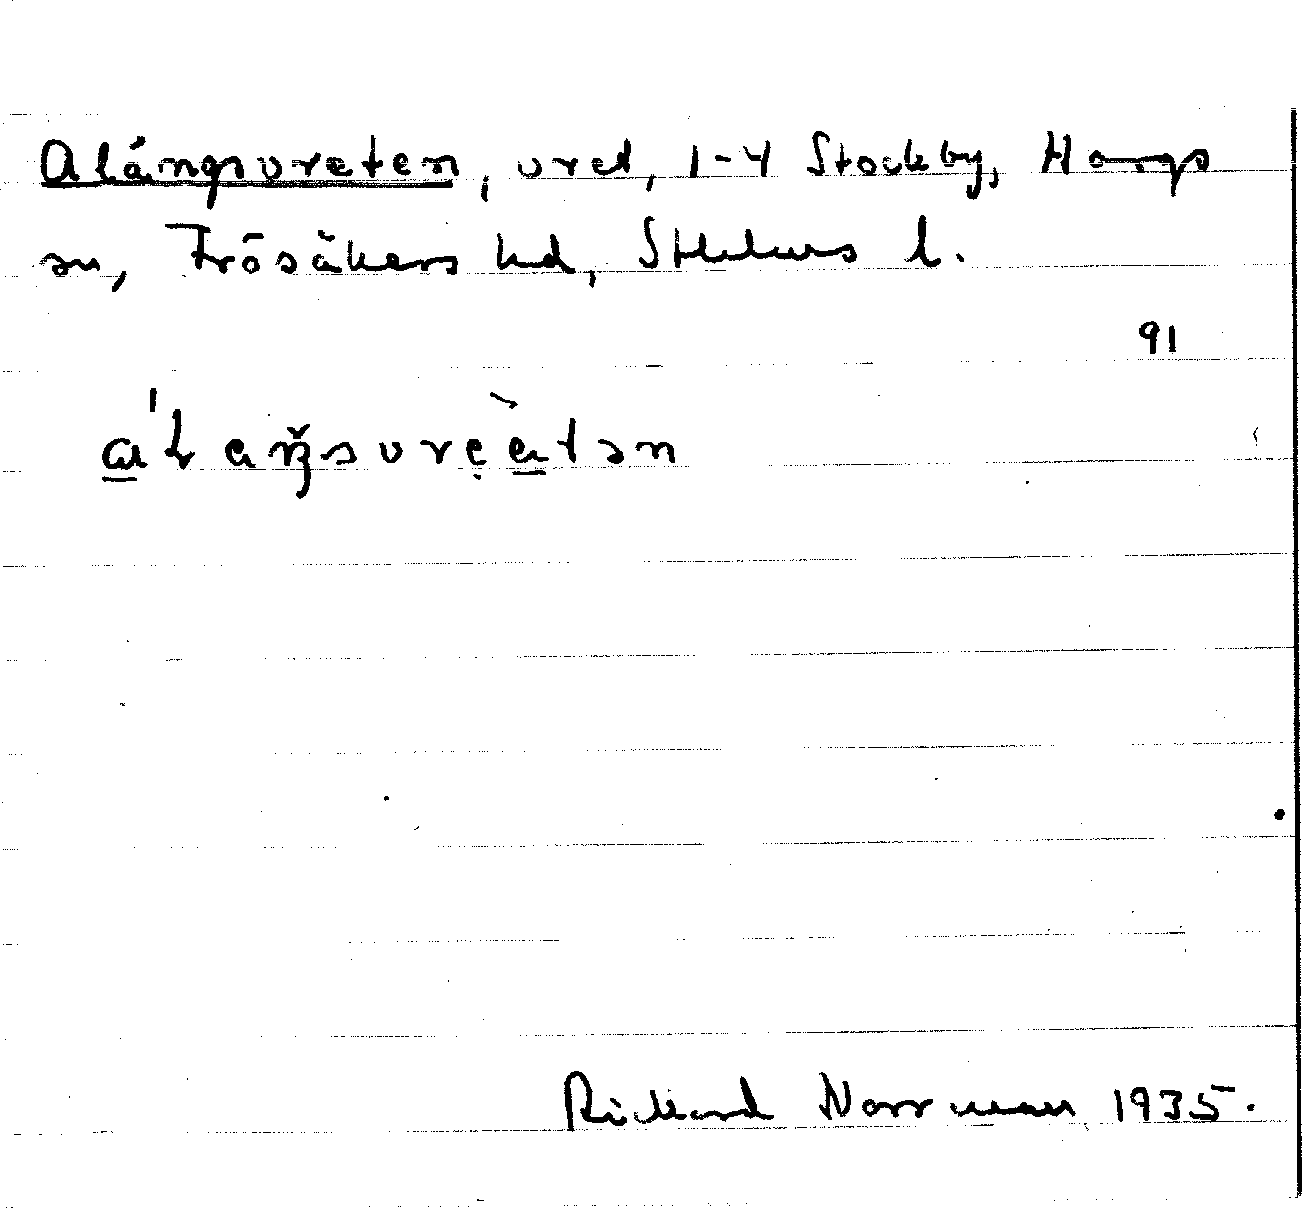 Alångsvreten, vred, 1-4 Stockby, Hargs
sn, Frösåkers hd, Sthlms l.
91
Rickard Norrman 1935.